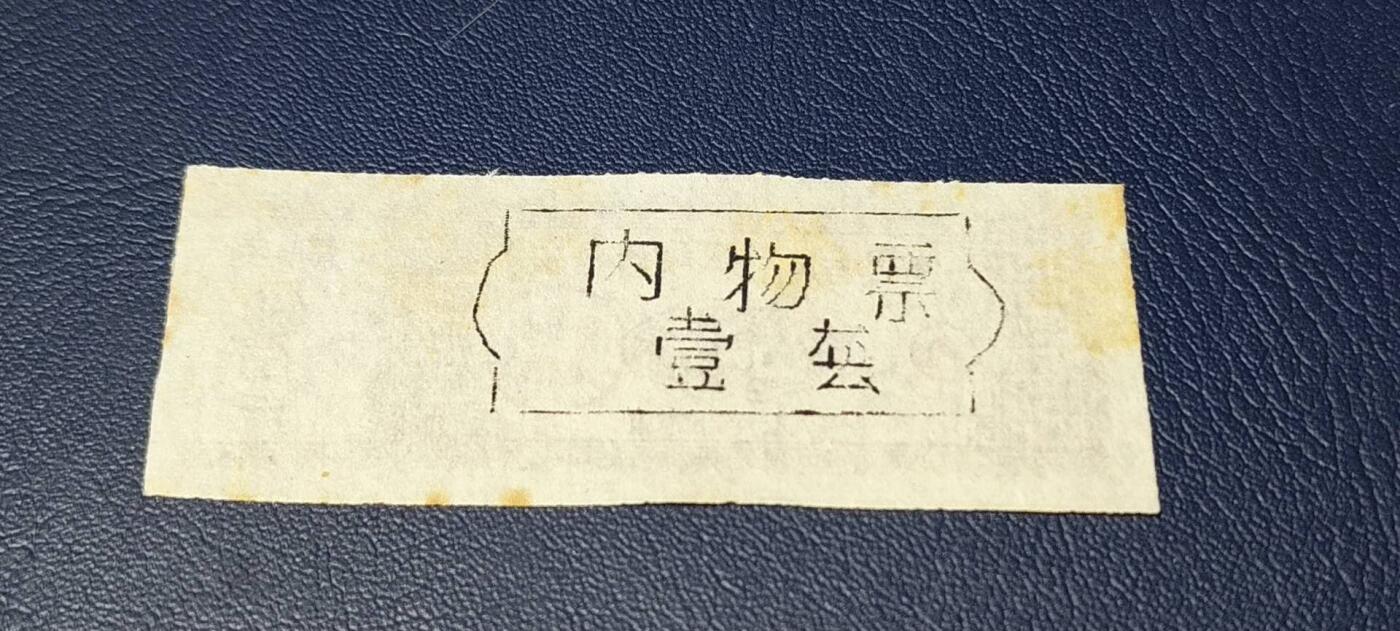 内物票
壹套